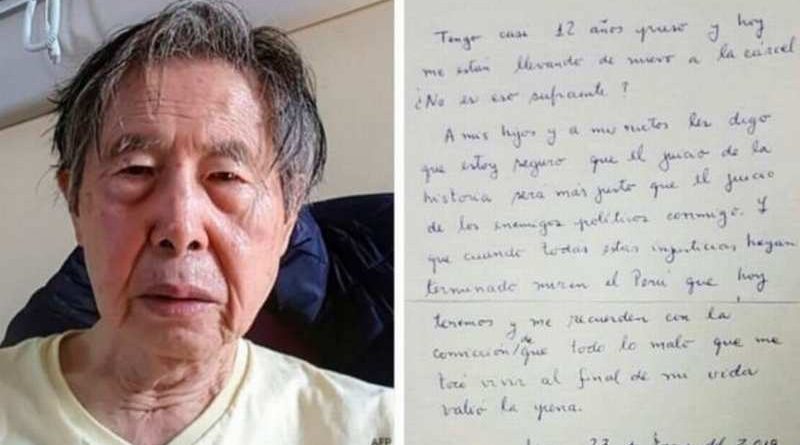 Tengo casi 12 años preso y hoy
me están llevando de nuevo a la cárcel
¿No es eso suficiente?
A mis hijos y a mis nietos les digo
que estoy seguro que el juicio de la
historia será más justo que el juicio
de los enemigos políticos conmigo. Y
que cuando todas estas injusticias hayan
terminado miren el Perú que hoy
tenemos y me recuerden con la
convicción/de que todo lo malo que me
tocó vivir al final de mi vida
valió la pena.
23 de 2019
AFP